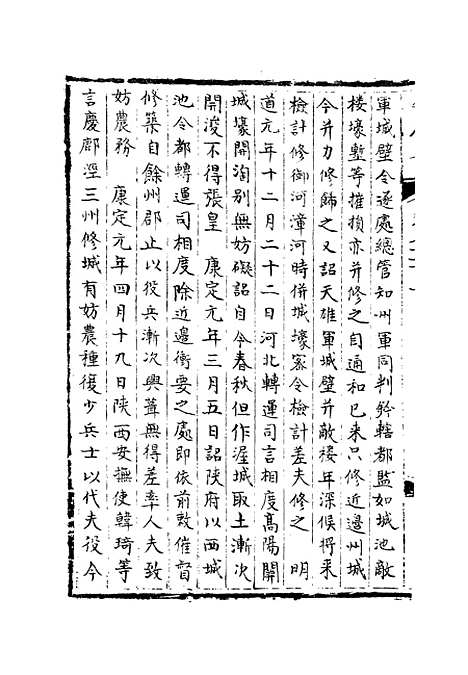 軍城壁令逐處總管知州軍同判鈐轄都監如城池敵
樓壕塹等摧損亦并修之自通和已来只修近邊州城
今并力修飾之又詔天雄軍城壁并敵樓年深候将来
檢計修御河漳河時併城壕寨令檢計差夫修之　明
道元年十二月二十二日河北轉運司言相度髙陽關
城壕開淘别無妨礙詔自今春秋但作渥城取土漸次
開浚不得張皇　康定元年三月五日詔陝府以西城
池令都轉運司相度除近邊衝要之處即依前敕催督
修築自餘州郡止以役兵漸次興葺無得差率人夫致
妨農務　康定元年四月十九日陝西安撫使韓琦等
言慶鄜涇三州修城有妨農種復少兵士以代夫役今